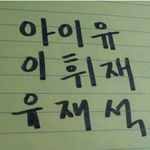 아이유
이휘재
유재석